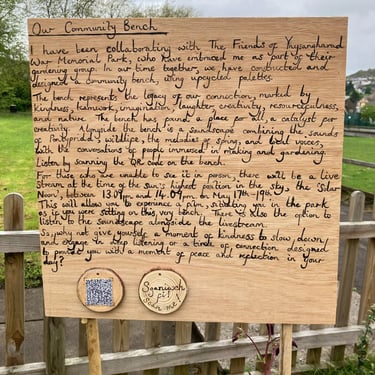 Our Community Bench
I have been collaborating with The Friends of Ynysangharad
War Memorial Park, who have embraced me as part of their
gardening group. In our time together, we have constructed and
designed a community bench, using upcycled palettes.
The bench represents the legacy of our connection, marked by
kindness, teamwork, imagination, laughter, creativity, resourcefulness,
and nature. The bench has found a place for all, a catalyst for
creativity. Alongside the bench is a soundscape combining the sounds
of Pontypridd's wildlife, the melodies of spring, and local voices,
with the conversations of people immersed in making and gardening.
Listen by scanning the QR code on the bench.
For those who are unable to see it in person, there will be a live
stream at the time of the sun's highest position in the sky, the 'Solar
Noon', between 13:09pm and 14:09pm on May 17th - 19th.
This will allow you to experience a film, situating you in the park
as if you were sitting on this very bench. There is also the option to
listen to the soundscape alongside the livestream.
So, why not give yourself a moment of kindness to slow down,
and engage in deep listening or a time of connection designed
to provide you with a moment of peace and reflection in your
day?
Sganiwch
fi!
Scan me!